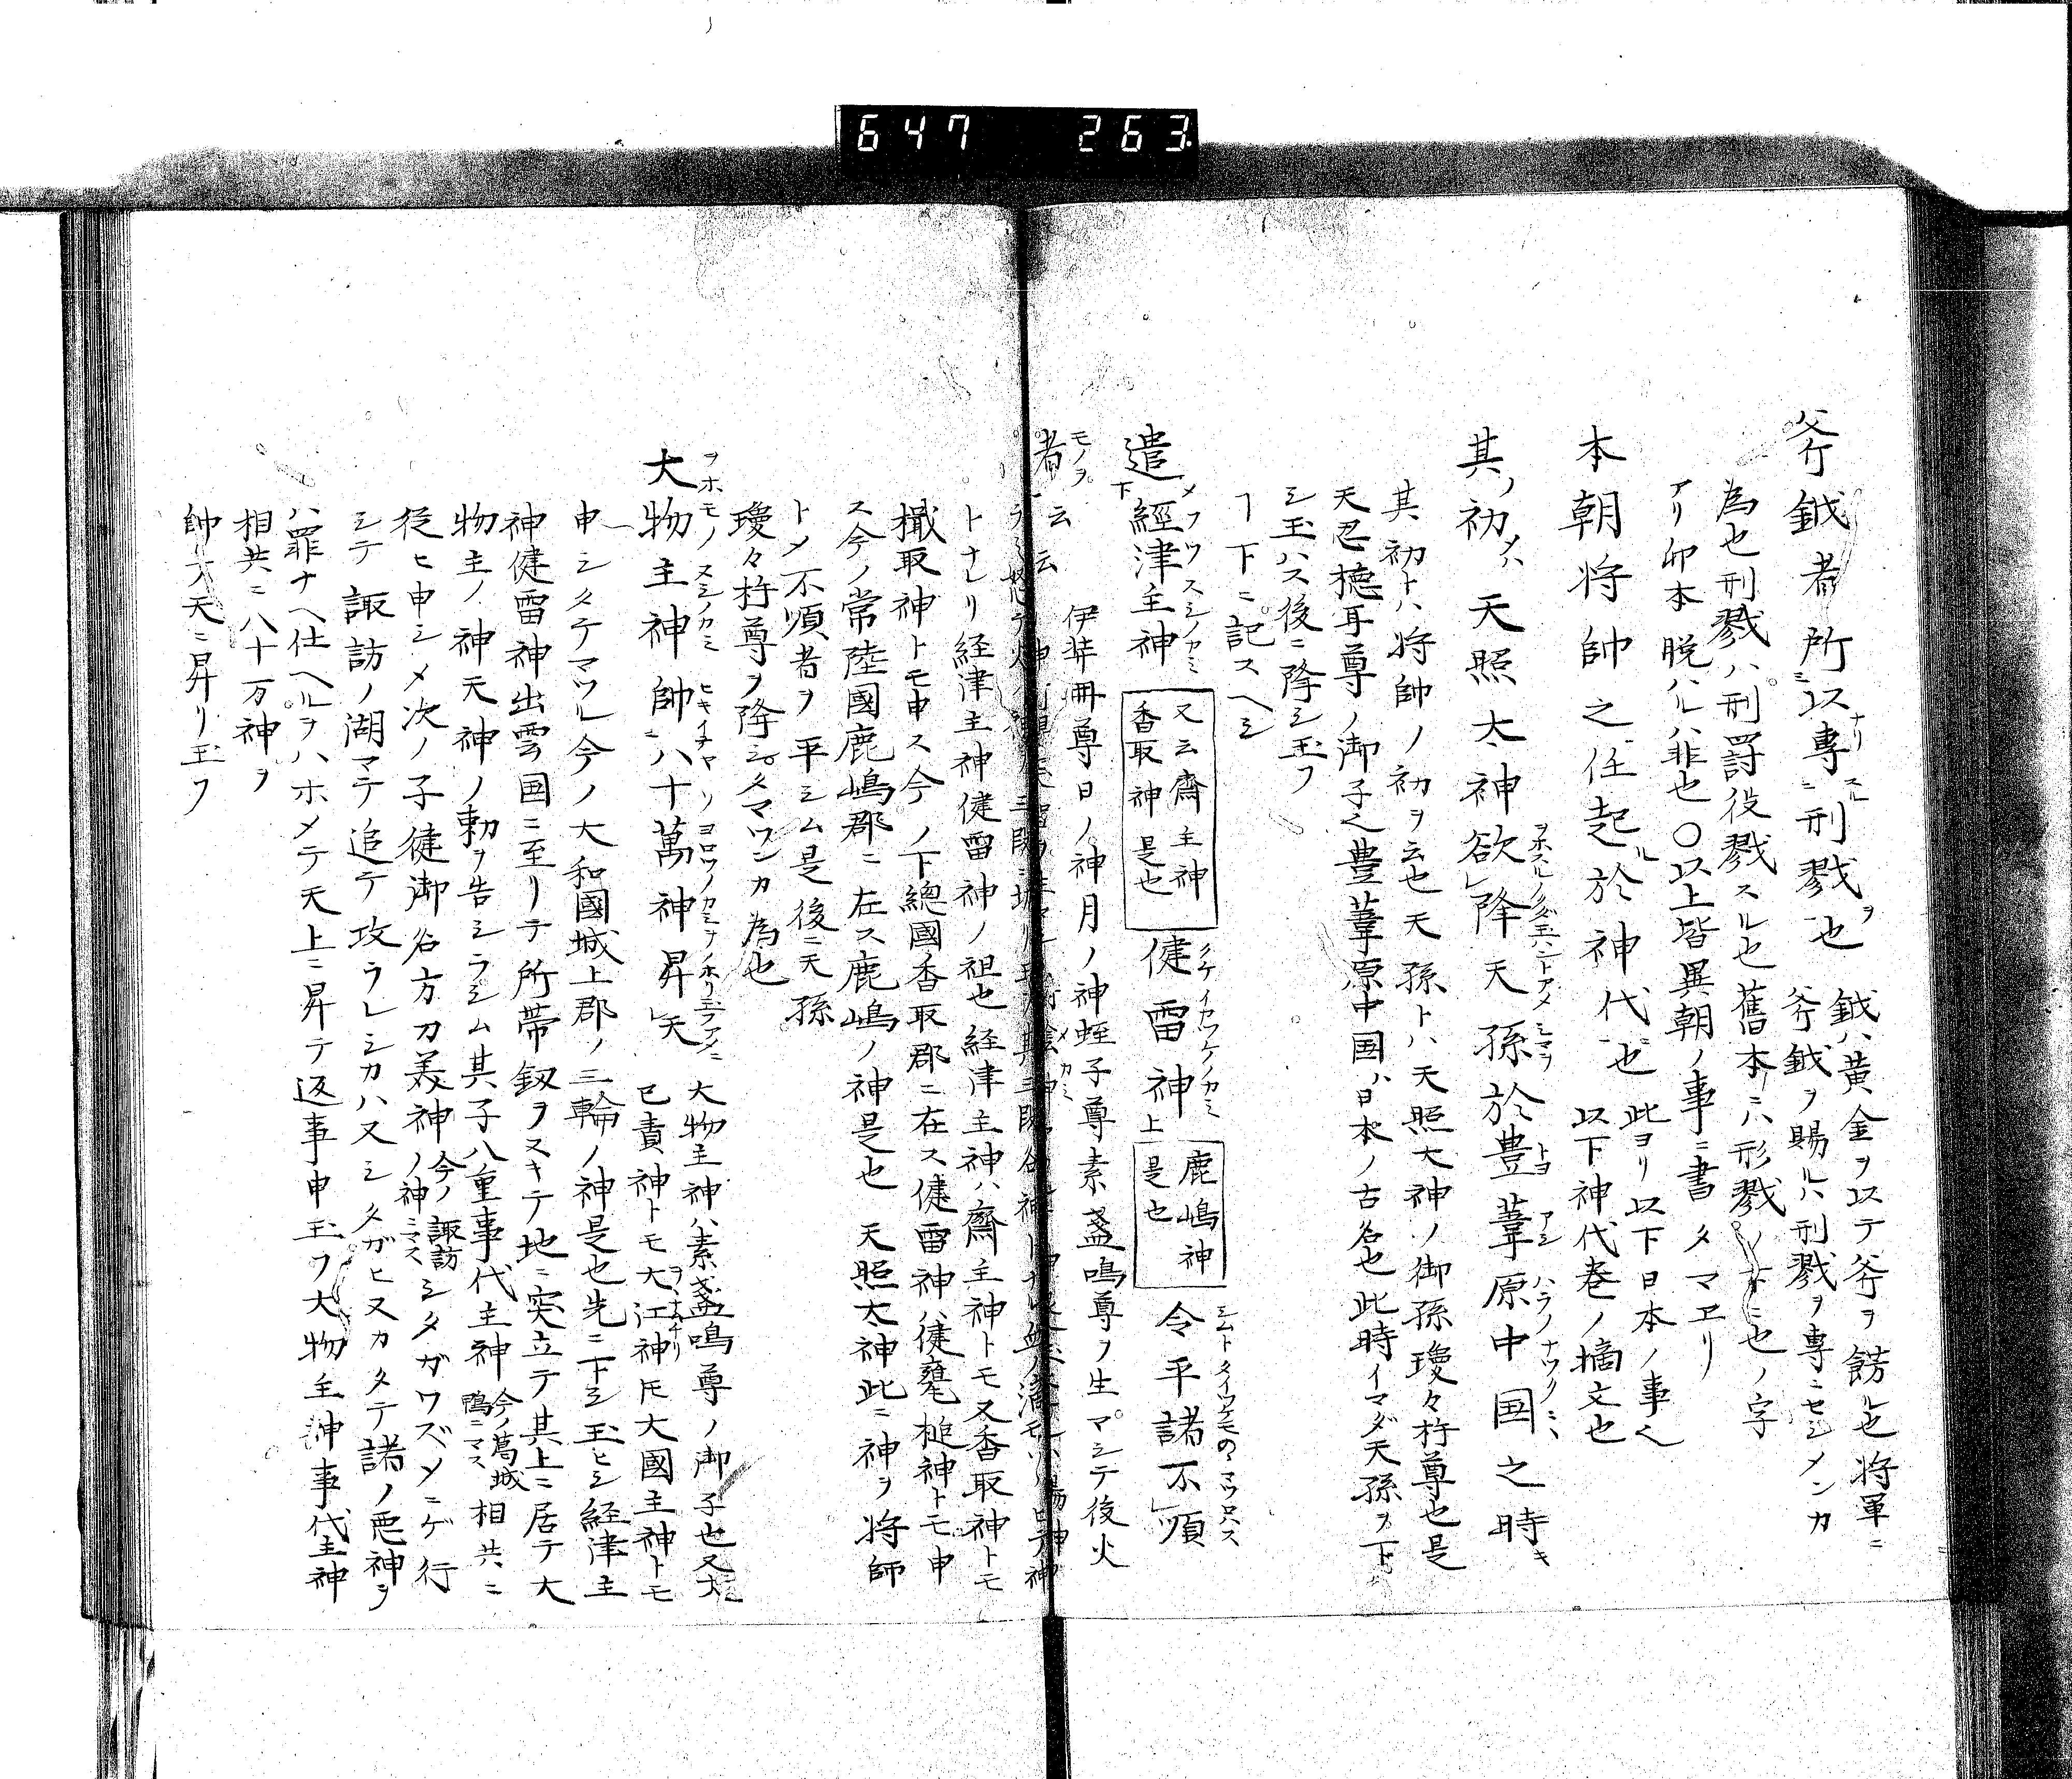 647 263
斧鉞者所以專刑戮也 鉞ハ黄金ヲ以テ斧ヲ餝ル也将軍ニ
斧鉞ヲ賜ルハ刑戮ヲ專ニセシメンカ
為也刑戮ハ刑罸役戮スル也舊本ニハ形戮ノ下ニ也ノ字
アリ卯本脱ハルハ非也〇以上皆異朝ノ事ニ書タマエリ
本朝将帥之任起於神代也 此ヨリ以下日本ノ事
以下神代巻ノ摘文也
其ノ初メハ天照太神欲降天孫於豊葦原中国之時キ
其初トハ将帥ノ初ヲ云也天孫トハ天照大神ノ御孫瓊々杵尊也是
天忍穂耳尊ノ御子豊葦原中国ハ日本ノ古名也此時イマダ天孫ヲ下
シ玉ハス後ニ降シ玉フ
下ニ記スヘシ
遣下經津主神 又云齋主神香取神是也 健雷神上 鹿嶋神是也 令平諸不順
者云云 伊弉冊尊日ノ神月ノ神蛭子尊素盞嗚尊ヲ生マシテ後火
トナレリ経津主神健雷神ノ祖也経津主神ハ齋主神トモ又香取神トモ
檝取神トモ申ス今ノ下總國香取郡ニ在ス健雷神ハ健甕槌神トモ申
ス今ノ常陸國鹿嶋郡ニ在ス鹿嶋ノ神是也 天照太神此ニ神ヲ将師
トメ不順者ヲ平シム是後ニ天孫
瓊々杵尊ヲ降シタマワンカ為也
大物主神帥八十萬神昇天 大物主神ハ素盞嗚尊ノ御子也又大
己責神トモ大江神圧大國主神トモ
申シタテマツル今ノ大和國城上郡ノ三輪ノ神是也先ニ下シ玉ヒシ経津主
神健雷神出雲国ニ至リテ所帯釼ヲヌキテ地ニ突立テ其上ニ居テ大
物主ノ神天神ノ勅ヲ告シラシム其子八重事代主神 今ノ葛城鴨ニマス 相共ニ
従ヒ申シメ次ノ子健御名方刀美神 今ノ諏訪ノ神ニマス シタガワズメニゲ行
シテ諏訪ノ湖マテ追テ攻ラレシカハ又シタガヒヌカタテ諸ノ悪神ヲ
ハ罪ナヘ仕ヘルヲハホメテ天上ニ昇テ返事申玉フ大物主神事代主神
相共ニ八十万神ヲ
帥テ天ニ昇リ玉フ